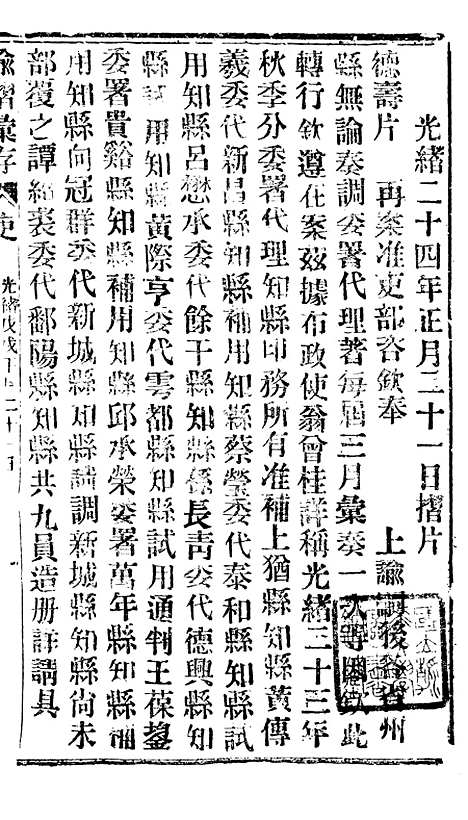 光緒二十四年正月二十一日摺片
德壽片　再案准吏部咨欽奉　上諭嗣後各省州
縣無論奏調委署代理著每屆三月彙奏一次等因欽此
轉行欽遵在案茲據布政使翁曾桂詳稱光緒二十三年
秋季分委署代理知縣印務所有准補上猶縣知縣黃傳
義委代新昌縣補用知縣蔡瑩委代泰和縣知縣試
用知縣呂懋承委代餘干縣知縣係長靑委代德興縣知
縣試用知縣黃際亨委代雩都縣知縣試用通判王葆鋆
委署貴谿縣知縣補用知縣邱承榮委署萬年縣知縣補
用知縣向冠群委代新城縣知縣請調新城縣知縣尚未
部覆之譚紹裘委代鄱陽縣知縣共九員造册詳請具
諭摺彙存
光緒戊戌正月二十一日